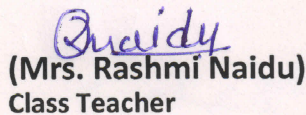 Rnaidu
(Mrs. Rashmi Naidu)
Class Teacher